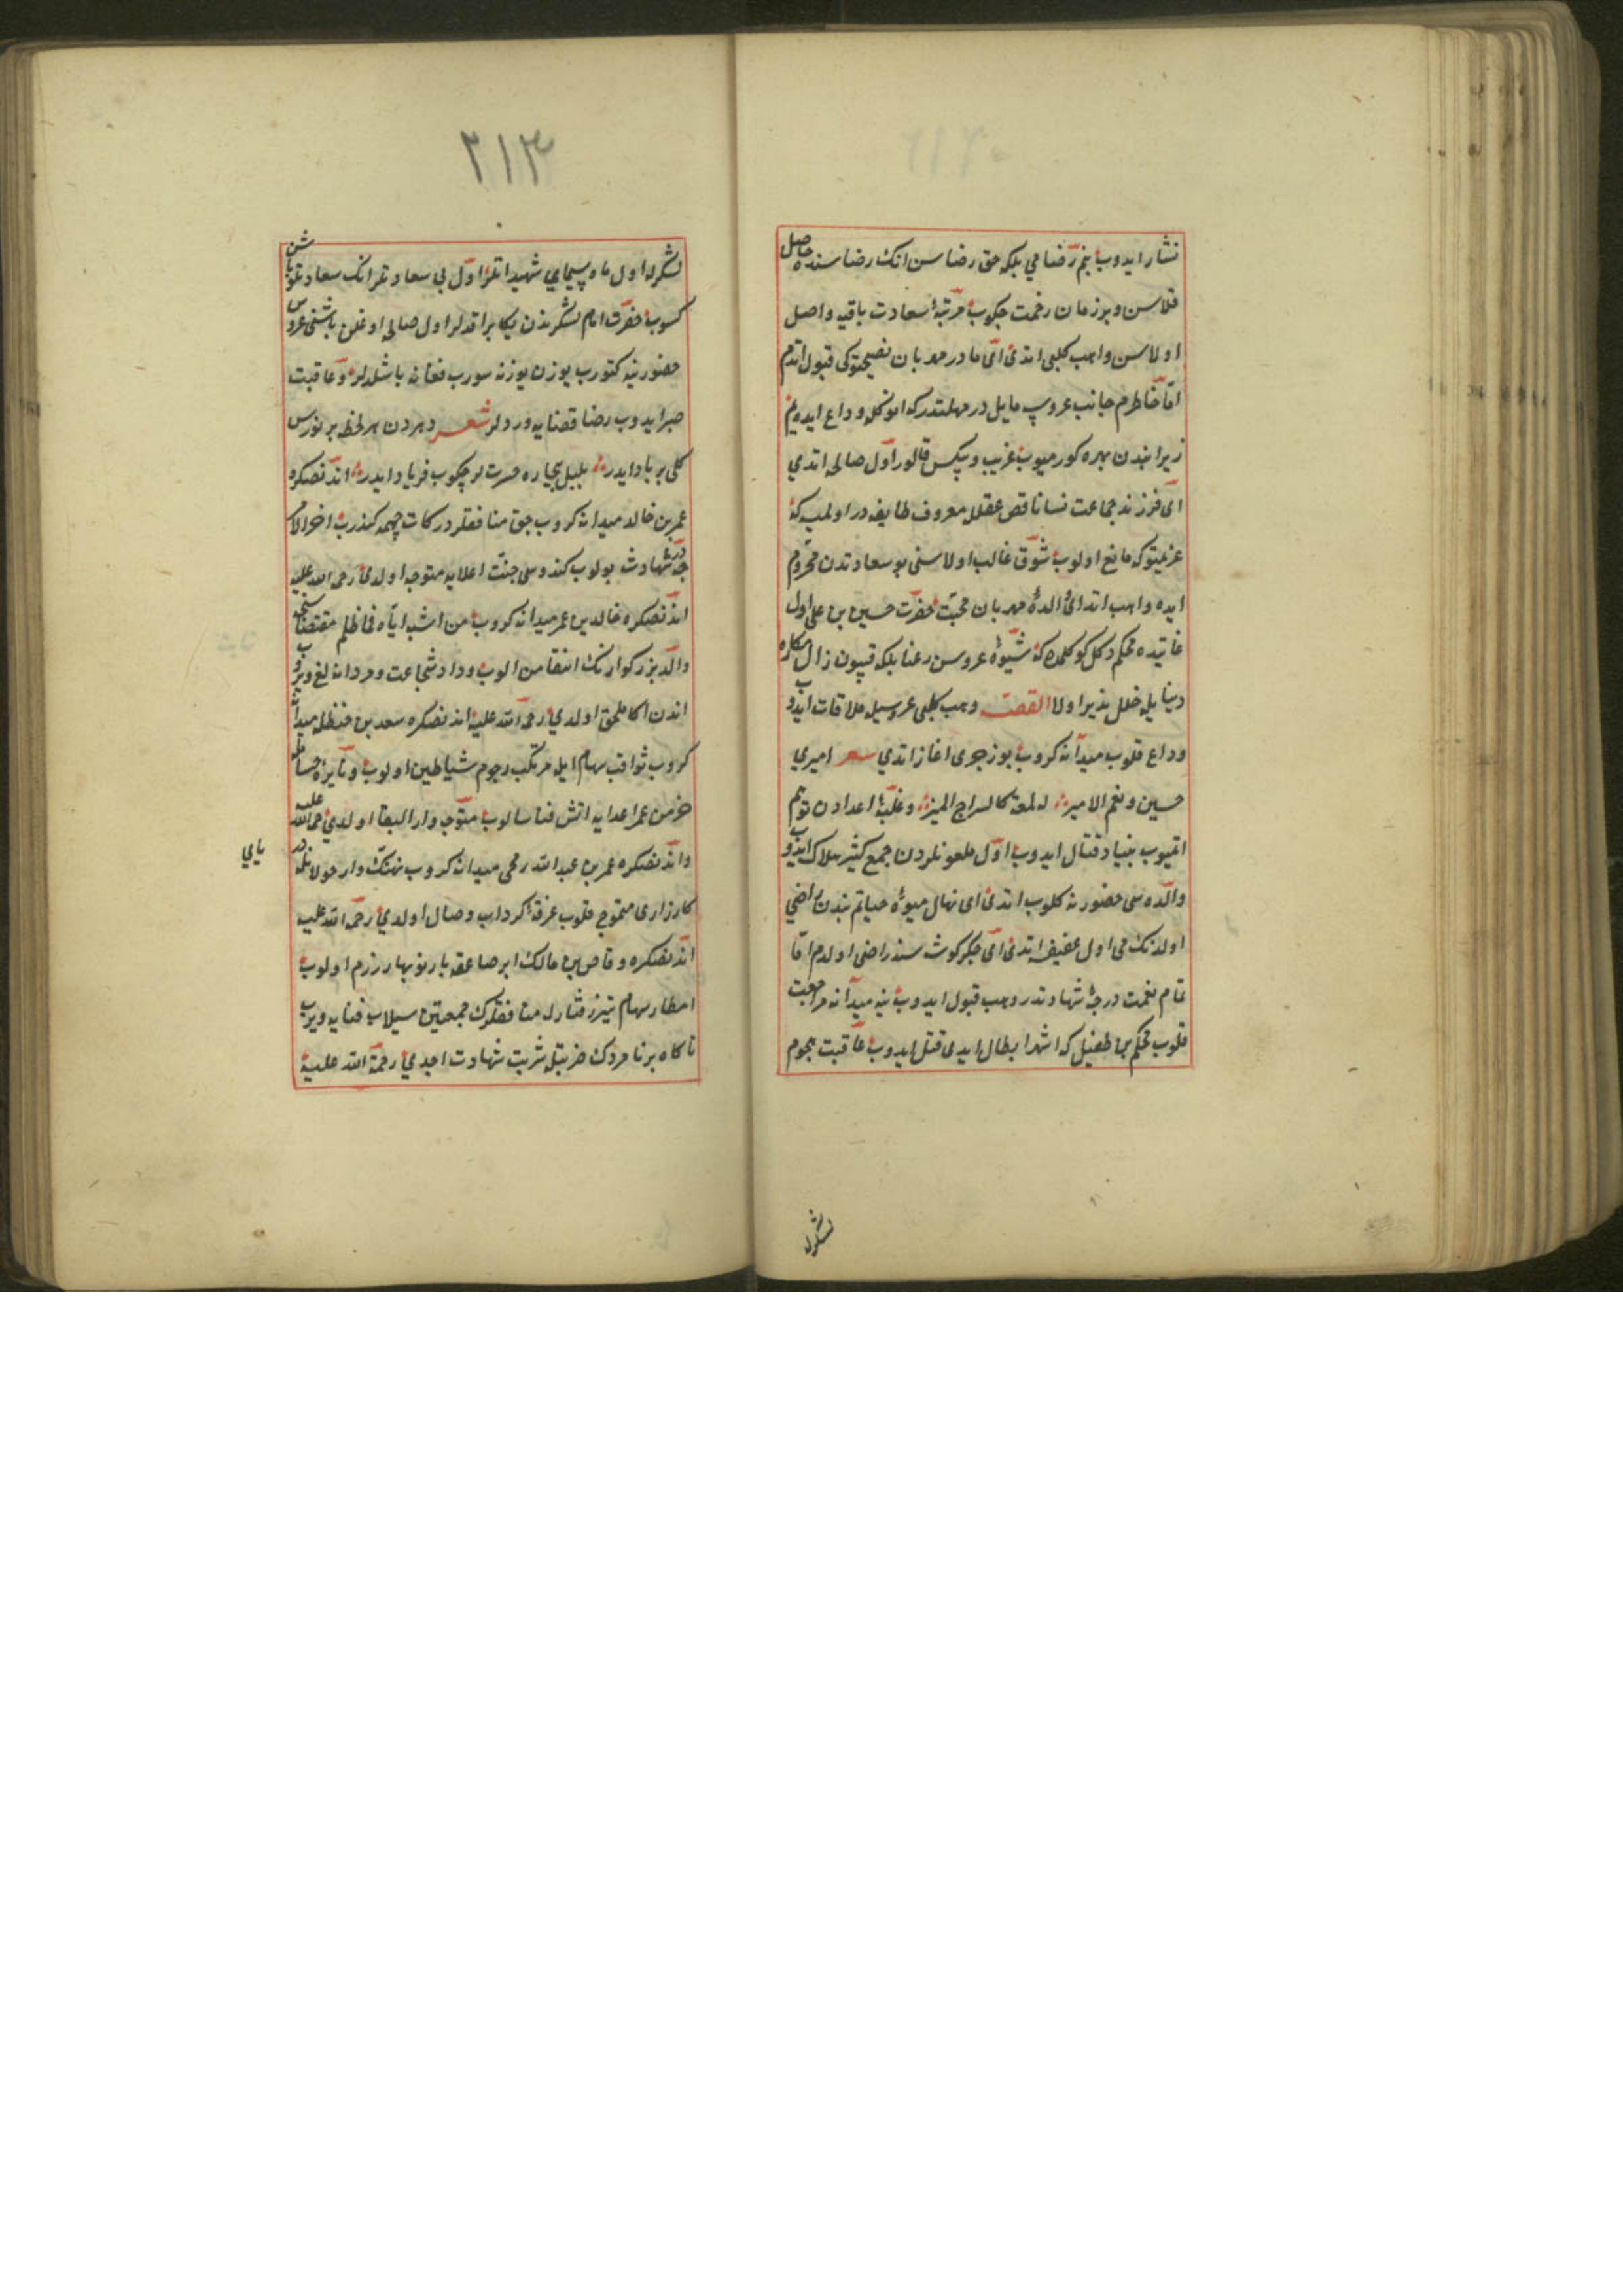 نثار ايدوب بنم رضامي بلكه حق رضاسن انك رضاسنده حاصل
قلاسن و بر زمان زحمت چكوب مرتبهٔ سعادت باقيه واصل
اولاسن واهب كلبى ايتدى اى مادر مهربان نصيحتوكى قبول اتدم
امّا خاطرم جانب عروسه مايل در مهلتدركه انوكله وداع ايده يم
زيرا بندن بهره كورميوب غريب و بيكس قالور اول صالحه ايتدي
اى فرزند جماعت نسا ناقص عقلله معروف طايفه در اولمسه كه
عزيمتوكه مانع اولوب شوق غالب اولاسنى بو سعادتدن محروم
ايده واهب ايتدى اى والدهٔ مهربان محبت حضرت حسين بن على اول
غايتده محكم دكل كوكلمده كه شيوهٔ عروس رعنا بلكه قيون زال مكاره
دنيا يله خلل پذير اولا القصه وهب كلبى عروسيله ملاقات ايدوب
وداع قلوب ميدانه كروب بو رجزى اغاز اتدي شعر اميري
حسين و نعم الامير له لمعة كالسراج المنير و غلبهٔ اعدادن توهم
اتميوب بنياد قتال ايدوب اول ملعونلردن جمع كثير هلاك ايدوب
والده سى حضورنه كلوب ايتدى اى نهال ميوهٔ حياتم بندن راضي
اولدنك مى اول عفيفه ايتدى اى جكركوشه سندن راضى اولدم امّا
تمام نعمت درجهٔ شهادتدر وهب قبول ايدوب ينه ميدانه مراجعت
قلوب محكم بن طفيل كه اشهر ابطال ايدى قتل ايدوب عاقبت هجوم
لشكرله
٢١٣
لشكرله اول ماه سيماي شهيد اتلر اول بى سعادتلر انك سعادتلو باشن
كسوب حضرت امام لشكرندن يكا براقدلر اول صالحه اوغلن باشنى عروس
حضورينه كتورب يوزن يوزنه سورب فغانه باشلدلر و عاقبت
صبر ايدوب رضا قضايه وردلر شعر دهردن هر لحظه بر نورس
كلى بر باد ايدر بلبل بيچاره حسرتلر چكوب فرياد ايدر اندنصكره
عمر بن خالد ميدانه كروب چق منافقلر دركات جهنمه كندرب اخر الامر
درجهٔ شهادت بولوب كندوسى جنت اعلايه متوجه اولدى رحمة الله عليه
اندنصكره خالد بن عمر ميدانه كروب من اشبه اباه فما ظلم مقتضاسنجه
والد بزركوارنك انتقامن الوب و داد شجاعت و مردانه لغ ويروب
اندن اكا ملحق اولدي رحمة الله عليه اندنصكره سعد بن حنظله ميدانه
كروب ثواقب سهام ايله مرتكب رجوم شياطين اولوب و نايرهٔ حسامله
خرمن عمر اعدايه اتش فنا سالوب متوجه دار البقا اولدى رحمة الله عليه
و اندنصكره عمر بن عبد الله رمحى ميدانه كروب نهنك وار جولانله درياي
كارزارى متموج قلوب غرقهٔ كرداب وصال اولدي رحمة الله عليه
اندنصكره وقاص بن مالك ابر صاعقه بار نوبهار رزم اولوب
امطار سهام تيزرفتارله منافقلرك جمعيتن سيلاب فنايه ويرب
ناكاه بر نامردك ضربتيله شربت شهادت اچدي رحمة الله عليه